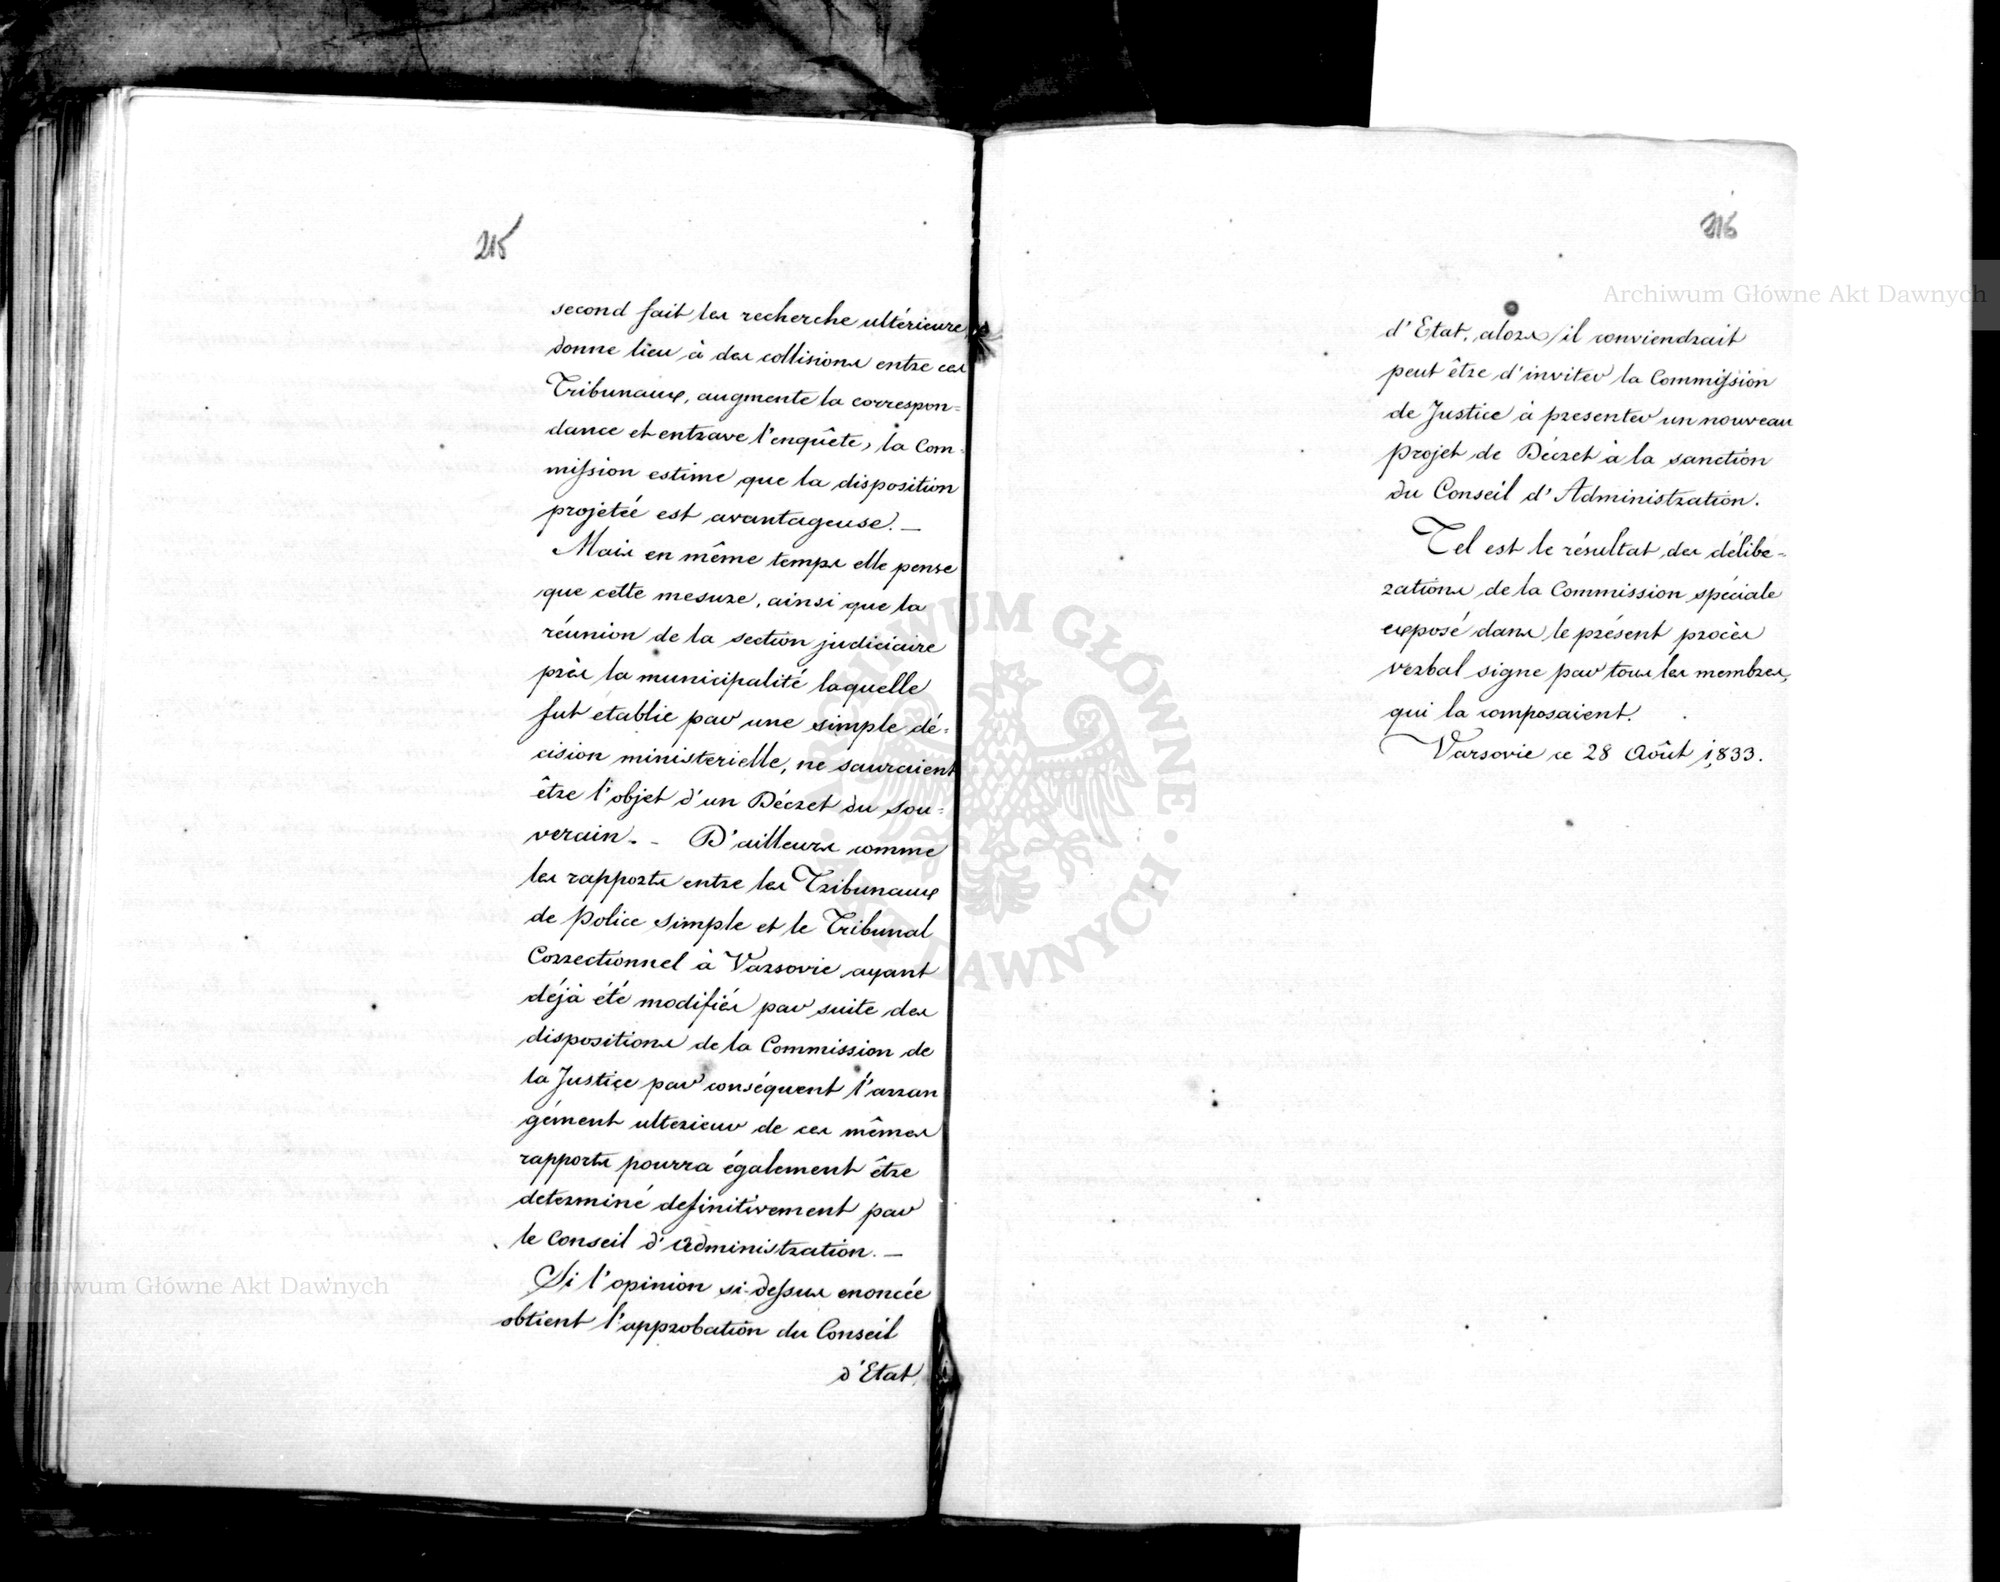 215
second fait les recherche ultérieure,
donne lieu à des collisions entre ces
Tribunaux, augmente la correspon=
dance et entrave l'enquête, la Com=
mission estime que la disposition
projetée est avantageuse. —
Mais en même temps elle pense
que cette mesure, ainsi que la
réunion de la section judiciaire
près la municipalité laquelle
fut établie par une simple dé=
cision ministerielle, ne sauraient
être l'objet d'un Décret du Sou=
verain. - D'ailleurs comme
les rapports entre les Tribunaux
de Police simple et le Tribunal
Correctionnel à Varsovie ayant
déjà été modifiés par suite des
dispositions de la Commission de
la Justice par conséquent l'arran
gément ulterieur de ces mêmes
rapports pourra également être
determiné definitivement par
le Conseil d'Administration. —
Si l'opinion si-dessus enoncée
obtient l'approbation du Conseil
d'Etat,
216
d'Etat, alors il conviendrait
peut être d'inviter la Commission
de Justice à presenter un nouveau
projet de Décret à la sanction
du Conseil d'Administration.
Tel est le résultat des délibe=
rations de la Commission spéciale
exposé dans le présent procès
verbal signe par tous les membres,
qui la composaient.
Varsovie ce 28 Août 1833.
Archiwum Główne Akt Dawnych
Archiwum Główne Akt Dawnych
ARCHIWUM GŁÓWNE AKT DAWNYCH